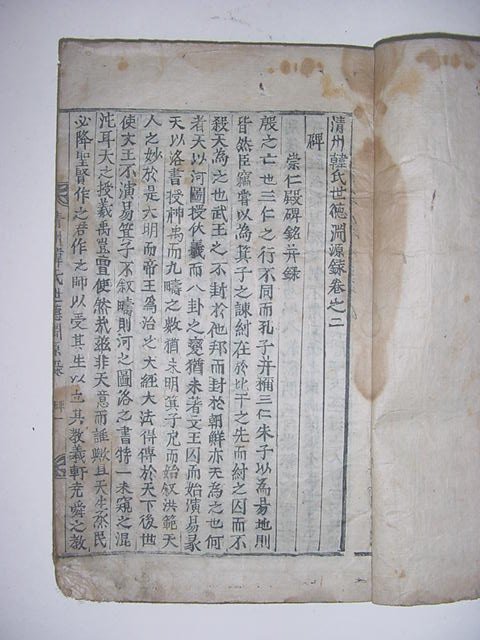 清州韓氏世德淵源錄卷之二
碑
崇仁殿碑銘并錄
殷之亡也三仁之行不同而孔子并稱三仁朱子以為易地則
皆然臣竊嘗以為箕子之諫紂在於比干之先而紂之囚而不
殺天為之也武王之不封於他邦而封於朝鮮亦天為之也何
者天以河圖授伏羲而八卦之變猶未著文王囚而始演易彖
天以洛書授神禹而九疇之數猶未明箕子咒而始叙洪範天
人之妙於是大明而帝王為治之大經大法得傳於天下後世
使文王不演易箕子不叙疇則河之圖洛之書特一未窺之混
沌耳天之授羲禹豈亶使然哉玆非天意而誰歟且天生烝民
必降聖賢作之君作之師以受其生以立其教羲軒堯舜之教
清州韓氏世德淵源錄 碑 一